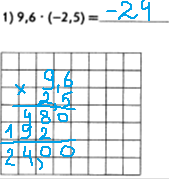 1) 9,6 · (-2,5) = -24
9,6
× 2,5
480
192
24,00